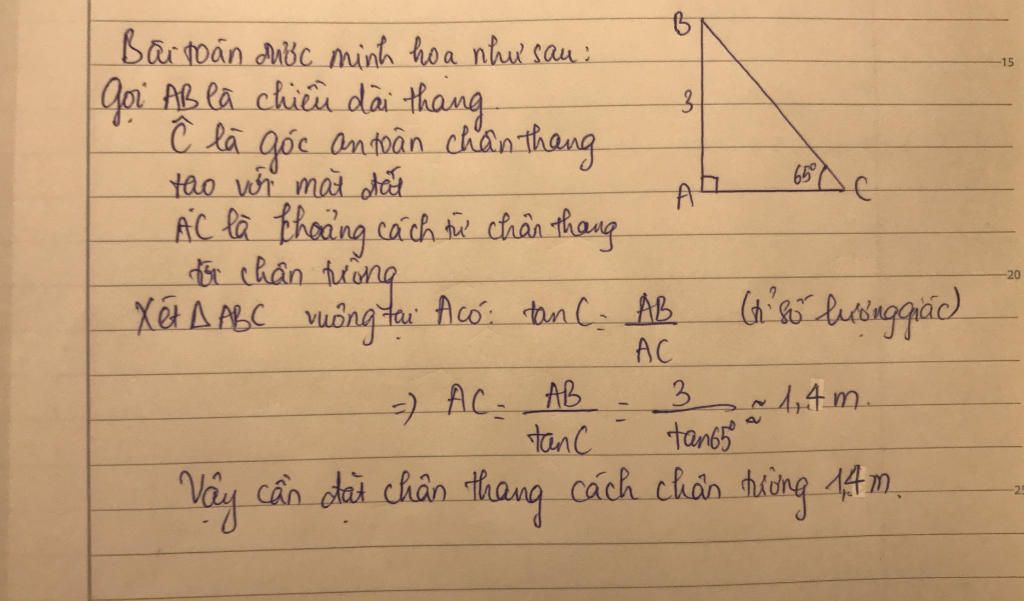 Bài toán được minh họa như sau:
Gọi AB là chiều dài thang.
Ĉ là góc an toàn chân thang
tạo với mặt đất
AC là khoảng cách từ chân thang
tới chân tường
Xét Δ ABC vuông tại A có: tan C = AB/AC (tỉ số lượng giác)
=> AC = AB/tan C = 3/tan65° ≈ 1,4 m.
Vậy cần đặt chân thang cách chân tường 1,4 m.
B
3
A
65°
C
15
20
25